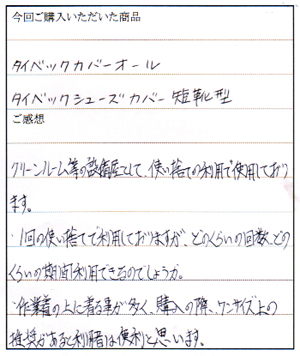 今回ご購入いただいた商品
タイベックカバーオール
タイベックシューズカバー 短靴型
ご感想
クリーンルーム等の設備屋として、使い捨ての利用で使用しており
ます。
・1回の使い捨てで利用しておりますが、どのくらいの回数、どの
くらいの期間利用できるのでしょうか。
・作業着の上に着る事が多く、購入の際、ワンサイズ上の
推奨があると利用者は便利と思います。